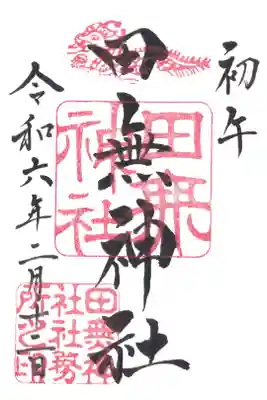 初午
田無神社
令和六年二月十二日
田無
神社
田無神
社社務
所之印